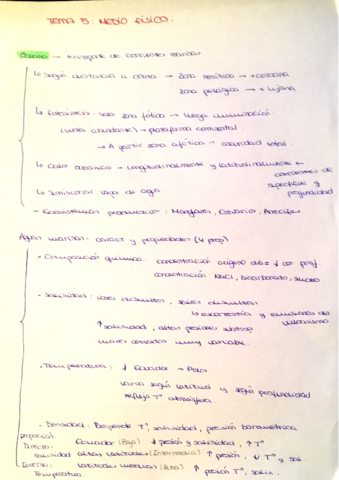 TEMA 5: MEDIO FÍSICO.
Océano → transporte de corrientes marinas
↳ Según distancia a costa → Zona nerítica → + cercana
Zona pelágica → + lejana
↳ Fotosíntesis: solo zona fótica → llega iluminación.
→ plataforma continental.
→ A partir zona afótica → oscuridad total.
↳ Calor oceánico → longitudinalmente y latitudinalmente ←
corrientes de
superficie y
profundidad
↳ Suministrar vapor de agua
- Ecosistemas productivos: Manglares, Estuarios, Arrecifes
Aguas marinas: caract y propiedades (4 prop)
· Composición química: concentración oxígeno ↓ con prof
concentración NaCl, bicarbonato,
· Salinidad: disueltos, sales disueltas
↳ escorrentía y emisiones del
vulcanismo
↑ salinidad, altas presiones subtrop.
mares cerrados muy variable.
· Temperatura: ↓ Ecuador → Polos
varía según latitud y según profundidad
reflejo Tª atmosférica
· Densidad: Depende Tª, salinidad, presión barométrica
proporción
Directa: Ecuador (Baja) ↓ presión y salinidad, ↑ Tª
salinidad altas latitudes (Intermedia) ↑ presión, ↓ Tª y sal.
Inversa: latitudes medias (Alta) ↑ presión, Tª, salin.
Temperatura.